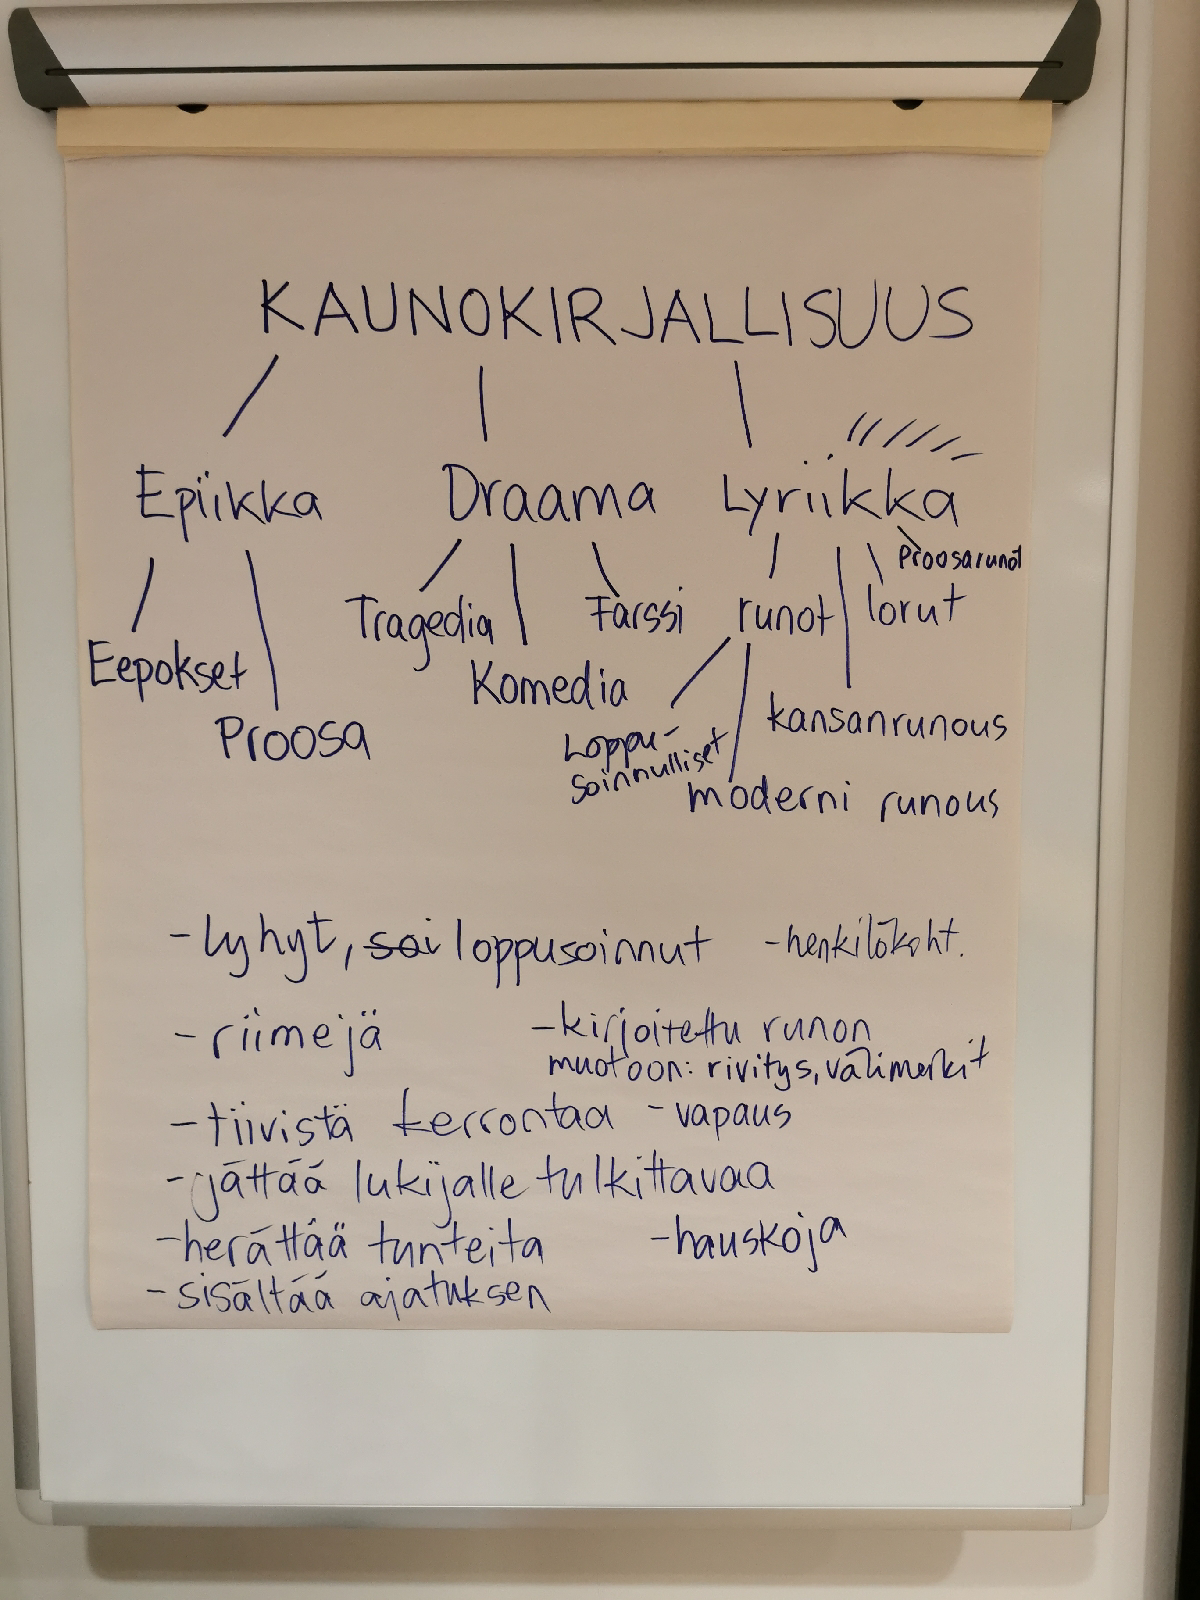 KAUNOKIRJALLISUUS
Epiikka Draama Lyriikka
Proosarunot
Tragedia Farssi runot lorut
Eepokset Komedia
Proosa kansanrunous
Loppu-
soinnulliset
moderni runous
-lyhyt, soi loppusoinnut -henkilökoht.
-riimejä -kirjoitettu runon
muotoon: rivitys, välimerkit
-tiivistä kerrontaa -vapaus
-jättää lukijalle tulkittavaa
-herättää tunteita -hauskoja
-sisältää ajatuksen